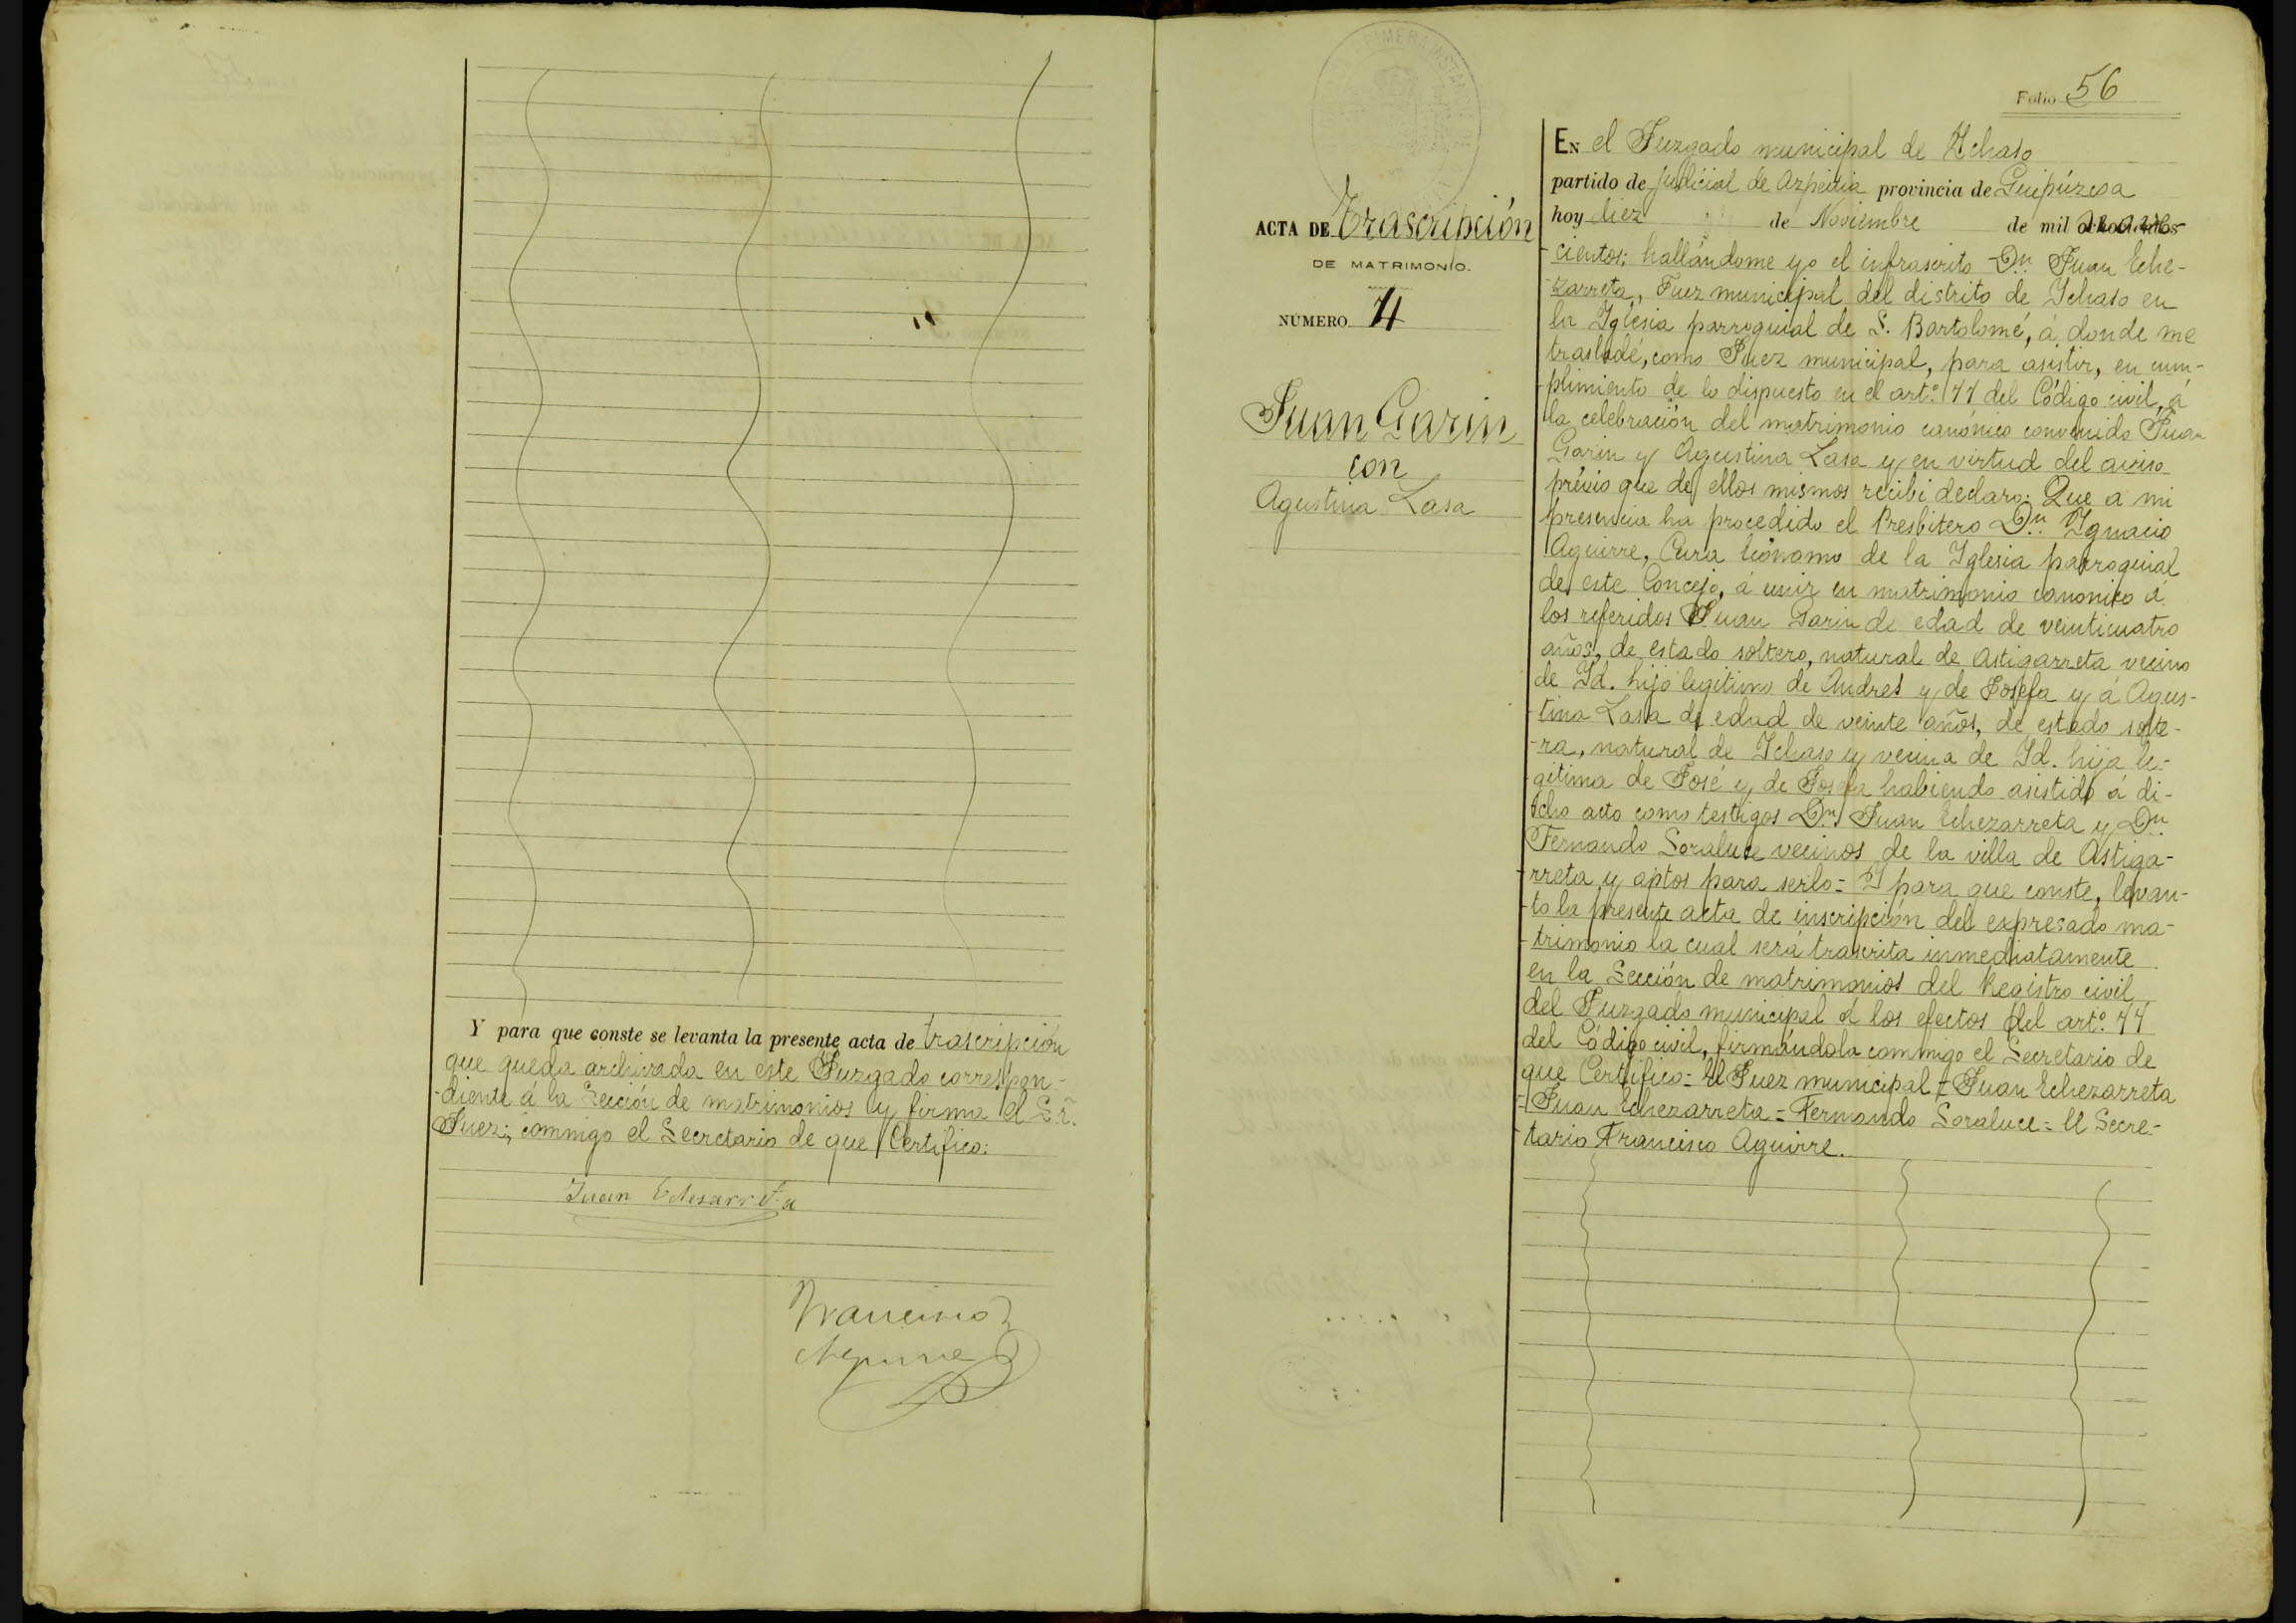 Y para que conste se levanta la presente acta de trascripción
que queda archivada en este Juzgado correspon-
-diente á la Sección de matrimonios y firma el Sr.
Juez; commigo el Secretario de que Certifico:
Juan Echezarreta
Francisco
Aguirre
Folio 56
ACTA DE Trascripción
DE MATRIMONIO.
NÚMERO 4
Juan Garin
con
Agustina Lasa
EN el Juzgado municipal de Ychaso
partido de judicial de Azpeitia provincia de Guipúzcoa
hoy diez de Noviembre de mil nove-
-cientos; hallándome yo el infrascrito Dn. Juan Eche-
-zarreta, Juez municipal del distrito de Ychaso en
la Yglesia parroquial de S. Bartolomé, á donde me
trasladé, como Juez municipal, para asistir, en cum-
-plimiento de lo dispuesto en el artº. 77 del Código civil, á
la celebración del matrimonio canónico convenido Juan
Garin y Agustina Lasa y en virtud del aviso
prévio que de ellos mismos recibi declaro: Que a mi
presencia ha procedido el Presbitero Dn. Ygnacio
Aguirre, Cura Ecónomo de la Yglesia parroquial
de este Concejo, á unir en matrimonio canonico á
los referidos Juan Garin de edad de veinticuatro
años, de estado soltero, natural de Astigarreta vecino
de Yd. hijo legitimo de Andres y de Josefa y á Agus-
-tina Lasa de edad de veinte años, de estado solte-
-ra, natural de Ychaso y vecina de Yd. hija le-
gitima de José y de Josefa habiendo asistido á di-
-cho acto como testigos Dn. Juan Echezarreta y Dn.
Fernando Soraluce vecinos de la villa de Astiga-
-rreta y aptos para serlo= Y para que conste, levan-
-to la presente acta de inscripción del expresado ma-
-trimonio la cual será trascrita inmediatamente
en la Sección de matrimonios del Registro civil
del Juzgado municipal á los efectos del artº. 77
del Código civil, firmándola commigo el Secretario de
que Certifico= El Juez municipal = Juan Echezarreta
= Juan Echezarreta = Fernando Soraluce = El Secre-
-tario Francisco Aguirre.